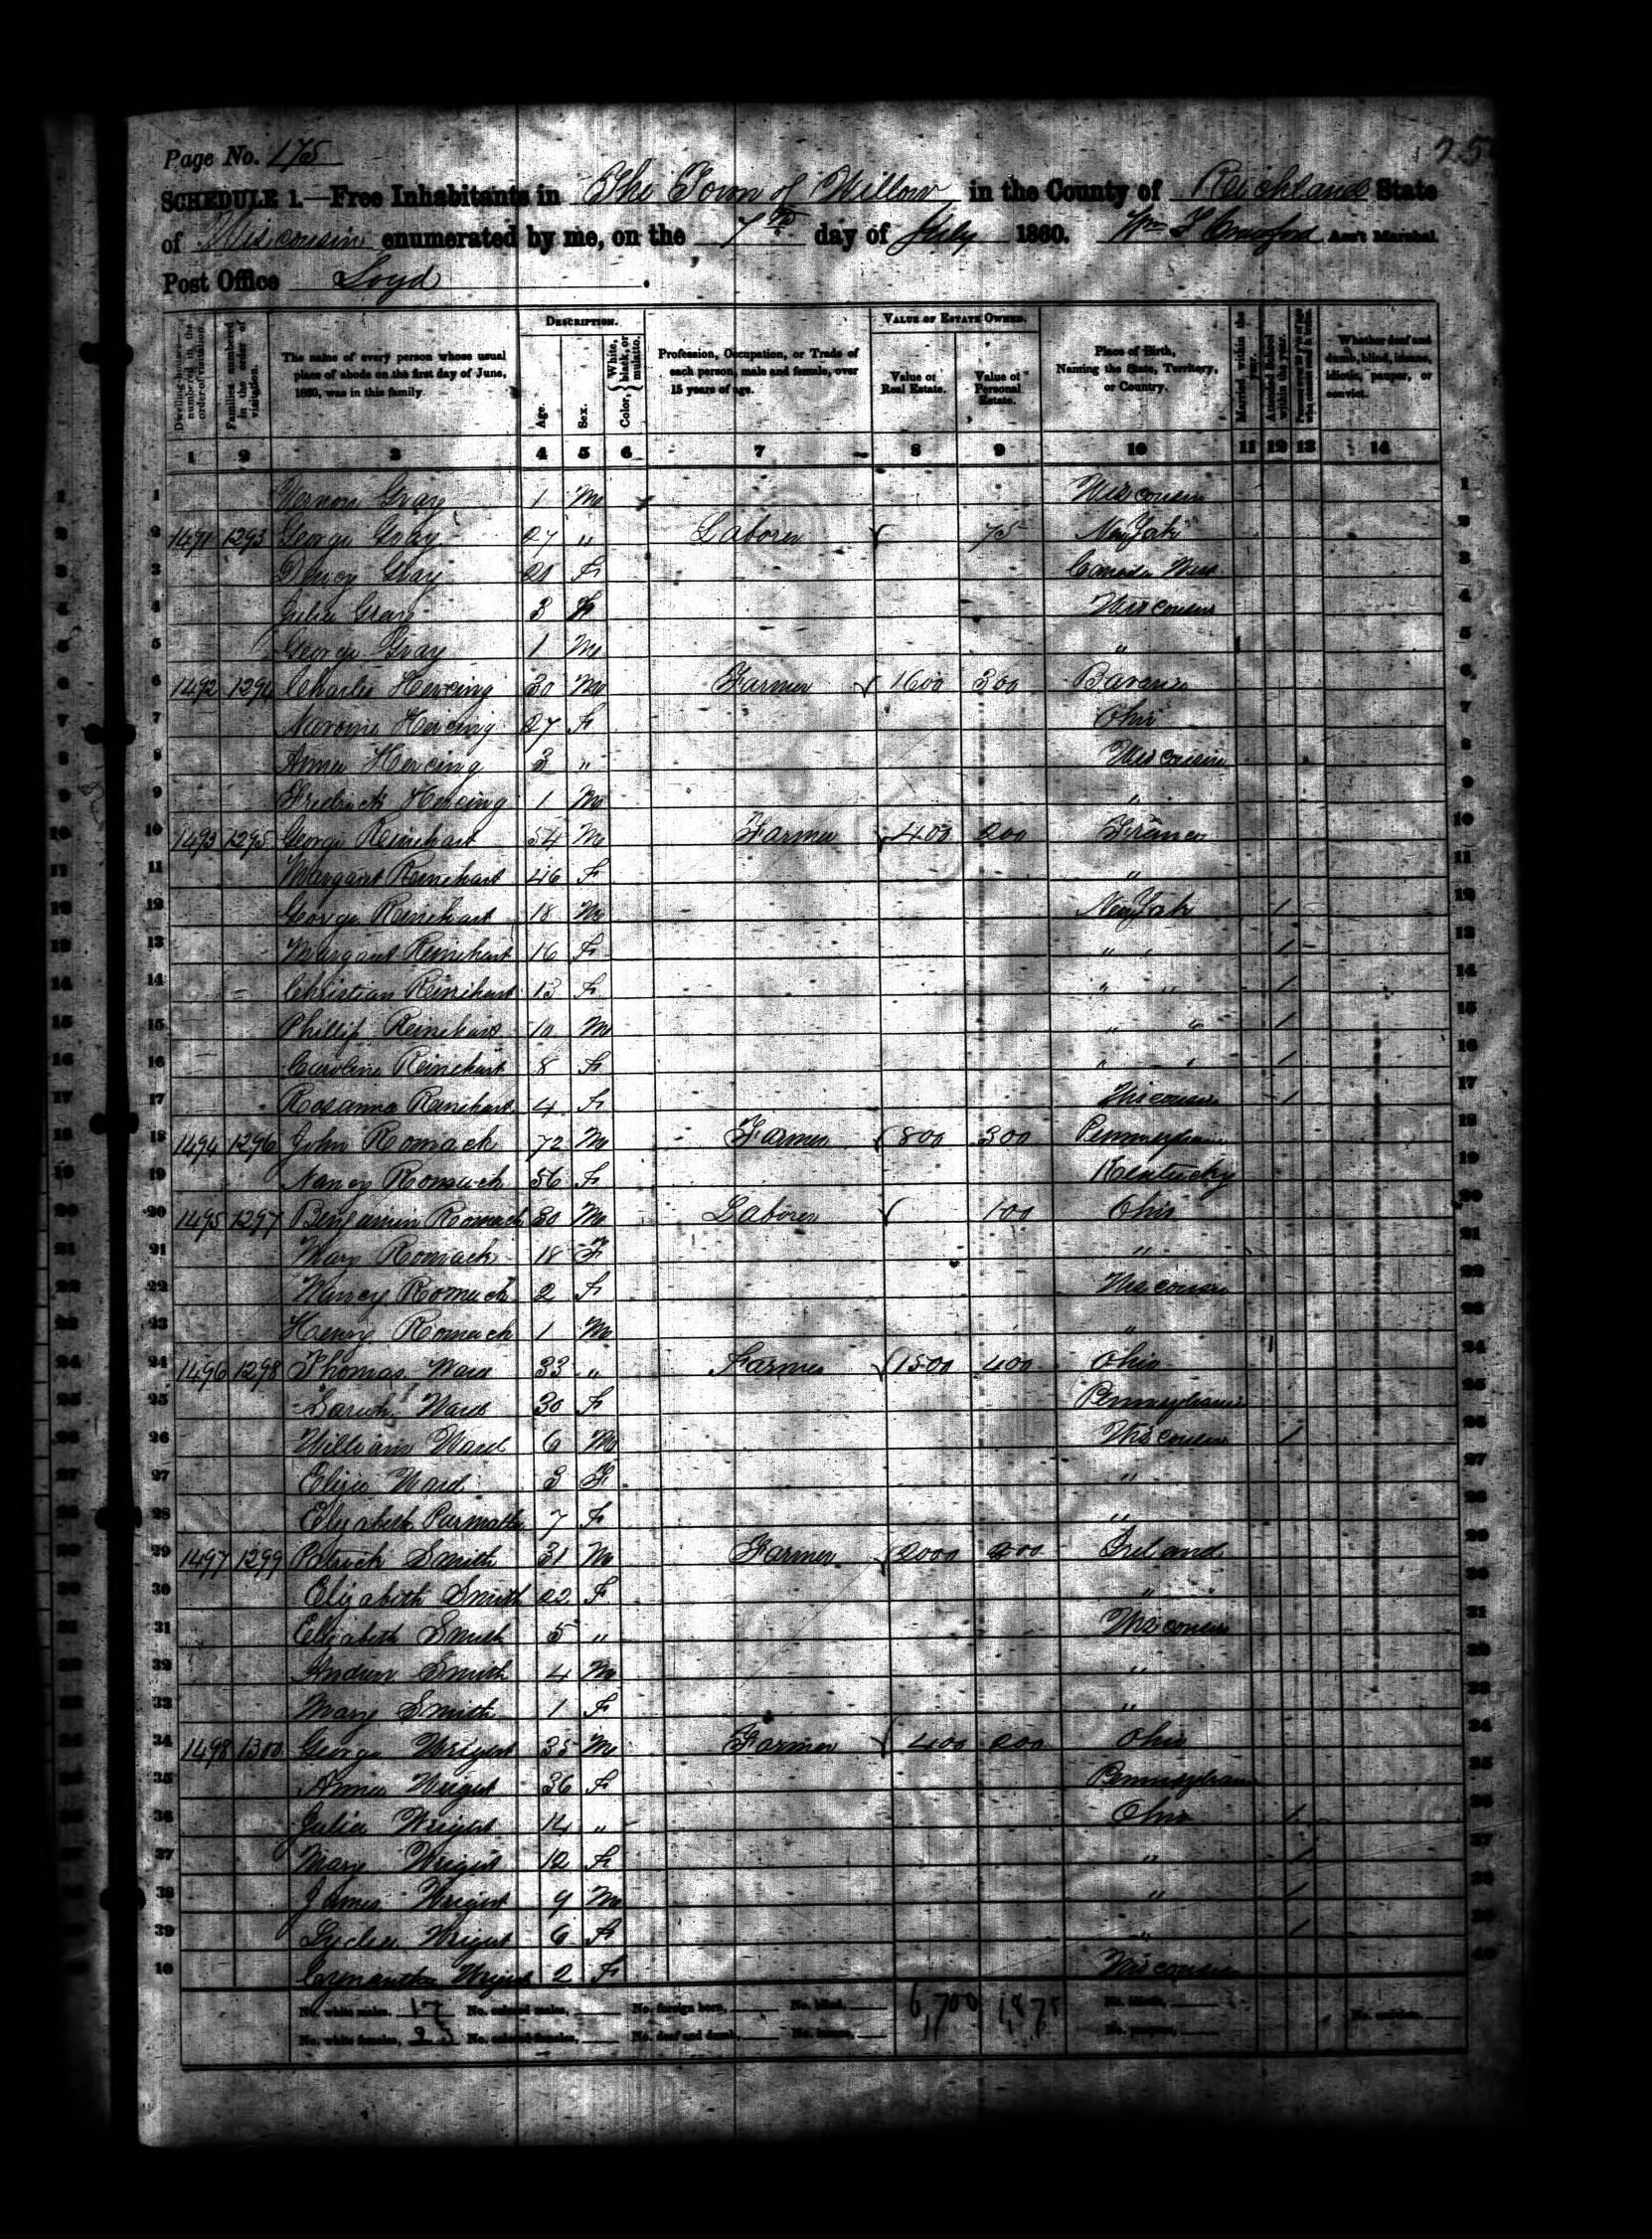 Page No. 175
SCHEDULE 1.—Free Inhabitants in The Town of Willow in the County of Reichland State
of Wisconsin enumerated by me, on the 7th day of July 1860. Wm F Crawford Ass't Marshal
Post Office Loyd
DESCRIPTION. VALUE OF ESTATE OWNED.
Dwelling-houses—numbered in the order of visitation. Families numbered in the order of visitation. The name of every person whose usual place of abode on the first day of June, 1860, was in this family Age. Sex. Color, White, black, or mulatto. Profession, Occupation, or Trade of each person, male and female, over 15 years of age. Value of Real Estate. Value of Personal Estate. Place of Birth, Naming the State, Territory, or Country. Married within the year. Attended School within the year. Persons over 20 years of age who cannot read & write. Whether deaf and dumb, blind, insane, idiotic, pauper, or convict.
1 2 3 4 5 6 7 8 9 10 11 12 13 14
1 Vernon Gray 1 M Wisconsin 1
2 1491 1293 George Gray 27 " Laborer 75 New York 2
3 Gray 21 F Canada West 3
4 Julia Gray 3 F Wisconsin 4
5 George Gray 1 M " 5
6 1492 1294 Charles Hercing 30 M Farmer 1600 300 Bavaria 6
7 Hercing 27 F Ohio 7
8 Anna Hercing 3 " Wisconsin 8
9 Fredrick Hercing 1 M " 9
10 1493 1295 George Reinehart 54 M Farmer 400 200 France 10
11 Margaret Reinehart 46 F " 11
12 George Reinehart 18 M New York 1 12
13 Margaret Reinehart 16 F " " 1 13
14 Christian Reinehart 13 F " " 1 14
15 Phillip Reinehart 10 M " " 1 15
16 Caroline Reinehart 8 F " " 1 16
17 Rosanna Reinehart 4 F Wisconsin 1 17
18 1494 1296 John Romach 72 M Farmer 800 300 Pennsylvania 18
19 Nancy Romach 56 F Kentucky 19
20 1495 1297 Benjamin Romach 30 M Laborer 100 Ohio 20
21 Mary Romach 18 F " 21
22 Nancy Romach 2 F Wisconsin 22
23 Henry Romach 1 M " 23
24 1496 1298 Thomas Ward 33 " Farmer 1500 400 Ohio 24
25 Sarah Ward 30 F Pennsylvania 25
26 William Ward 6 M Wisconsin 1 26
27 Eliza Ward 3 F " 27
28 Elizabeth 7 F " 28
29 1497 1299 Patrick Smith 31 M Farmer 2000 200 Ireland 29
30 Elizabeth Smith 22 F " " 30
31 Elizabeth Smith 5 " Wisconsin 31
32 Andrew Smith 4 M " 32
33 Mary Smith 1 F " 33
34 1498 1300 George Wright 35 M Farmer 400 200 Ohio 34
35 Anna Wright 36 F Pennsylvania 35
36 Julia Wright 14 " Ohio 1 36
37 Mary Wright 12 F " 1 37
38 James Wright 9 M " 1 38
39 Lydia Wright 6 F " 1 39
40 Wright 2 F Wisconsin 40
No. white males, 17 No. colored males, No. foreign born, No. blind, 6,700 1,875 No. idiotic, No. convicts,
No. white females, 23 No. colored females, No. deaf and dumb, No. insane, No. paupers,